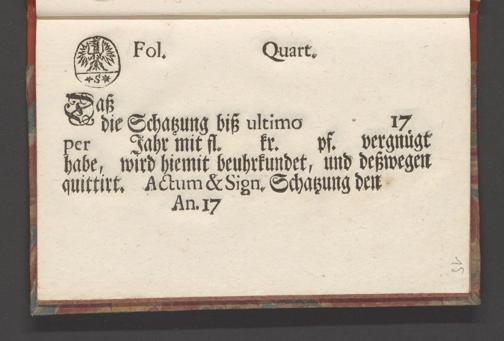 Fol. Quart.
*S*
Daß
die Schatzung biß ultimo 17
per Jahr mit fl. kr. pf. vergnügt
habe, wird hiemit beuhrkundet, und deßwegen
quittirt. Actum & Sign. Schatzung den
An. 17
15